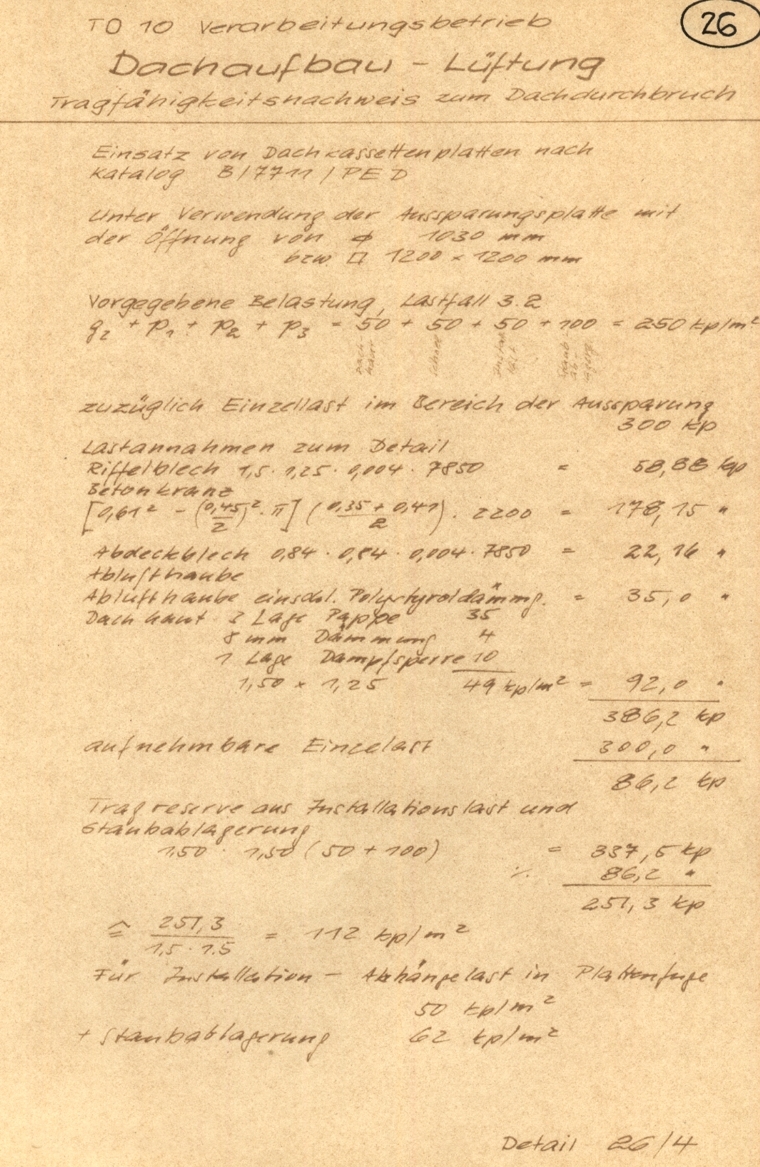 26
TO 10 Verarbeitungsbetrieb
Dachaufbau - Lüftung
Tragfähigkeitsnachweis zum Dachdurchbruch
Einsatz von Dachkassettenplatten nach
Katalog B/7711/PED
Unter Verwendung der Aussparungsplatte mit
der Öffnung von ⌀ 1030 mm
bzw □ 1200 × 1200 mm
Vorgegebene Belastung, Lastfall 3.2
g₂ + p₁ + p₂ + p₃ = 50 + 50 + 50 + 100 = 250 kp/m²
zuzüglich Einzellast im Bereich der Aussparung
300 kp
Lastannahmen zum Detail
Riffelblech 1,5 · 1,25 · 0,004 · 7850 = 58,88 kp
Betonkranz
[0,61² - (0,45/2)² · π] (0,35 + 0,41 / 2) · 2200 = 178,15 "
Abdeckblech 0,84 · 0,84 · 0,004 · 7850 = 22,16 "
Ablufthaube
Ablufthaube einschl. Polystyroldämmg. = 35,0 "
Dachhaut 3 Lage Pappe 35
8 mm Dämmung 4
1 Lage Dampfsperre 10
1,50 × 1,25 49 kp/m² = 92,0 "
386,2 kp
aufnehmbare Einzelast 300,0 "
86,2 kp
Tragreserve aus Installationslast und
Staubablagerung
1,50 · 1,50 (50 + 100) = 337,5 kp
·/. 86,2 "
251,3 kp
≙ 251,3 / 1,5 · 1.5 = 112 kp/m²
Für Installation - Abhängelast in Plattenfuge
50 kp/m²
+ Staubablagerung 62 kp/m²
Detail 26/4